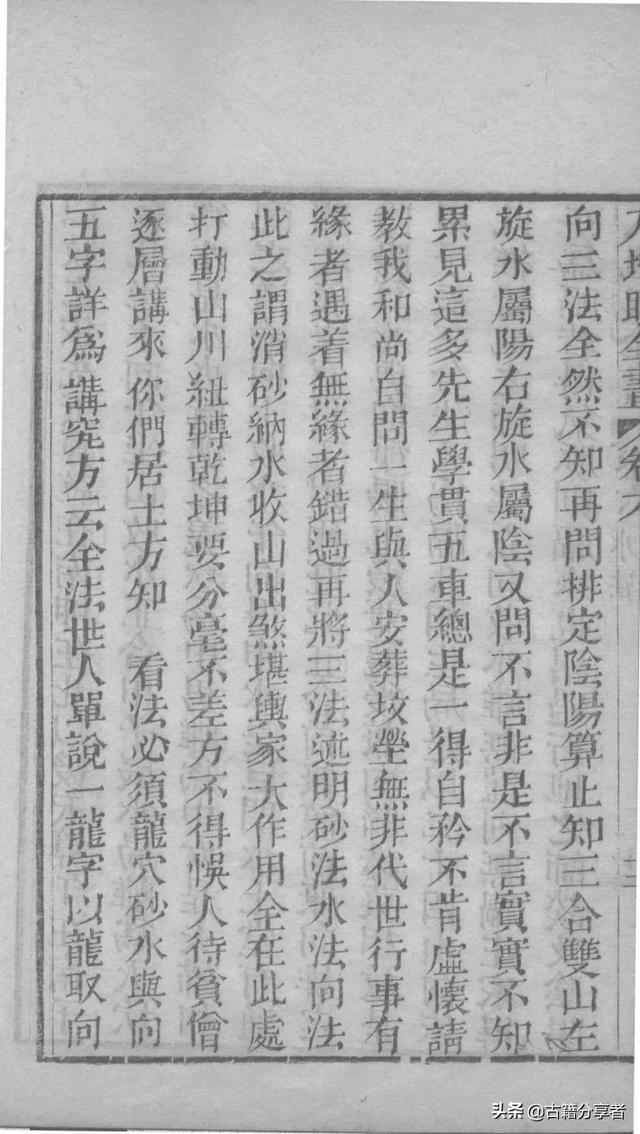 向三法全然不知再問排定陰陽算止知三合雙山左
旋水屬陽右旋水屬陰又問不言非是不言實實不知
累見這多先生學貫五車總是一得自矜不肯虛懷請
教我和尚自問一生與人安葬坟塋無非代世行事有
緣者遇着無緣者錯過再將三法述明砂法水法向法
此之謂消砂納水收山出煞堪輿家大作用全在此處
打動山川紐轉乾坤要分毫不差方不得悞人待貧僧
逐層講來你們居土方知 看法必須龍穴砂水與向
五字詳爲講究方云全法世人單說一龍字以龍取向
头条 @古籍分享者